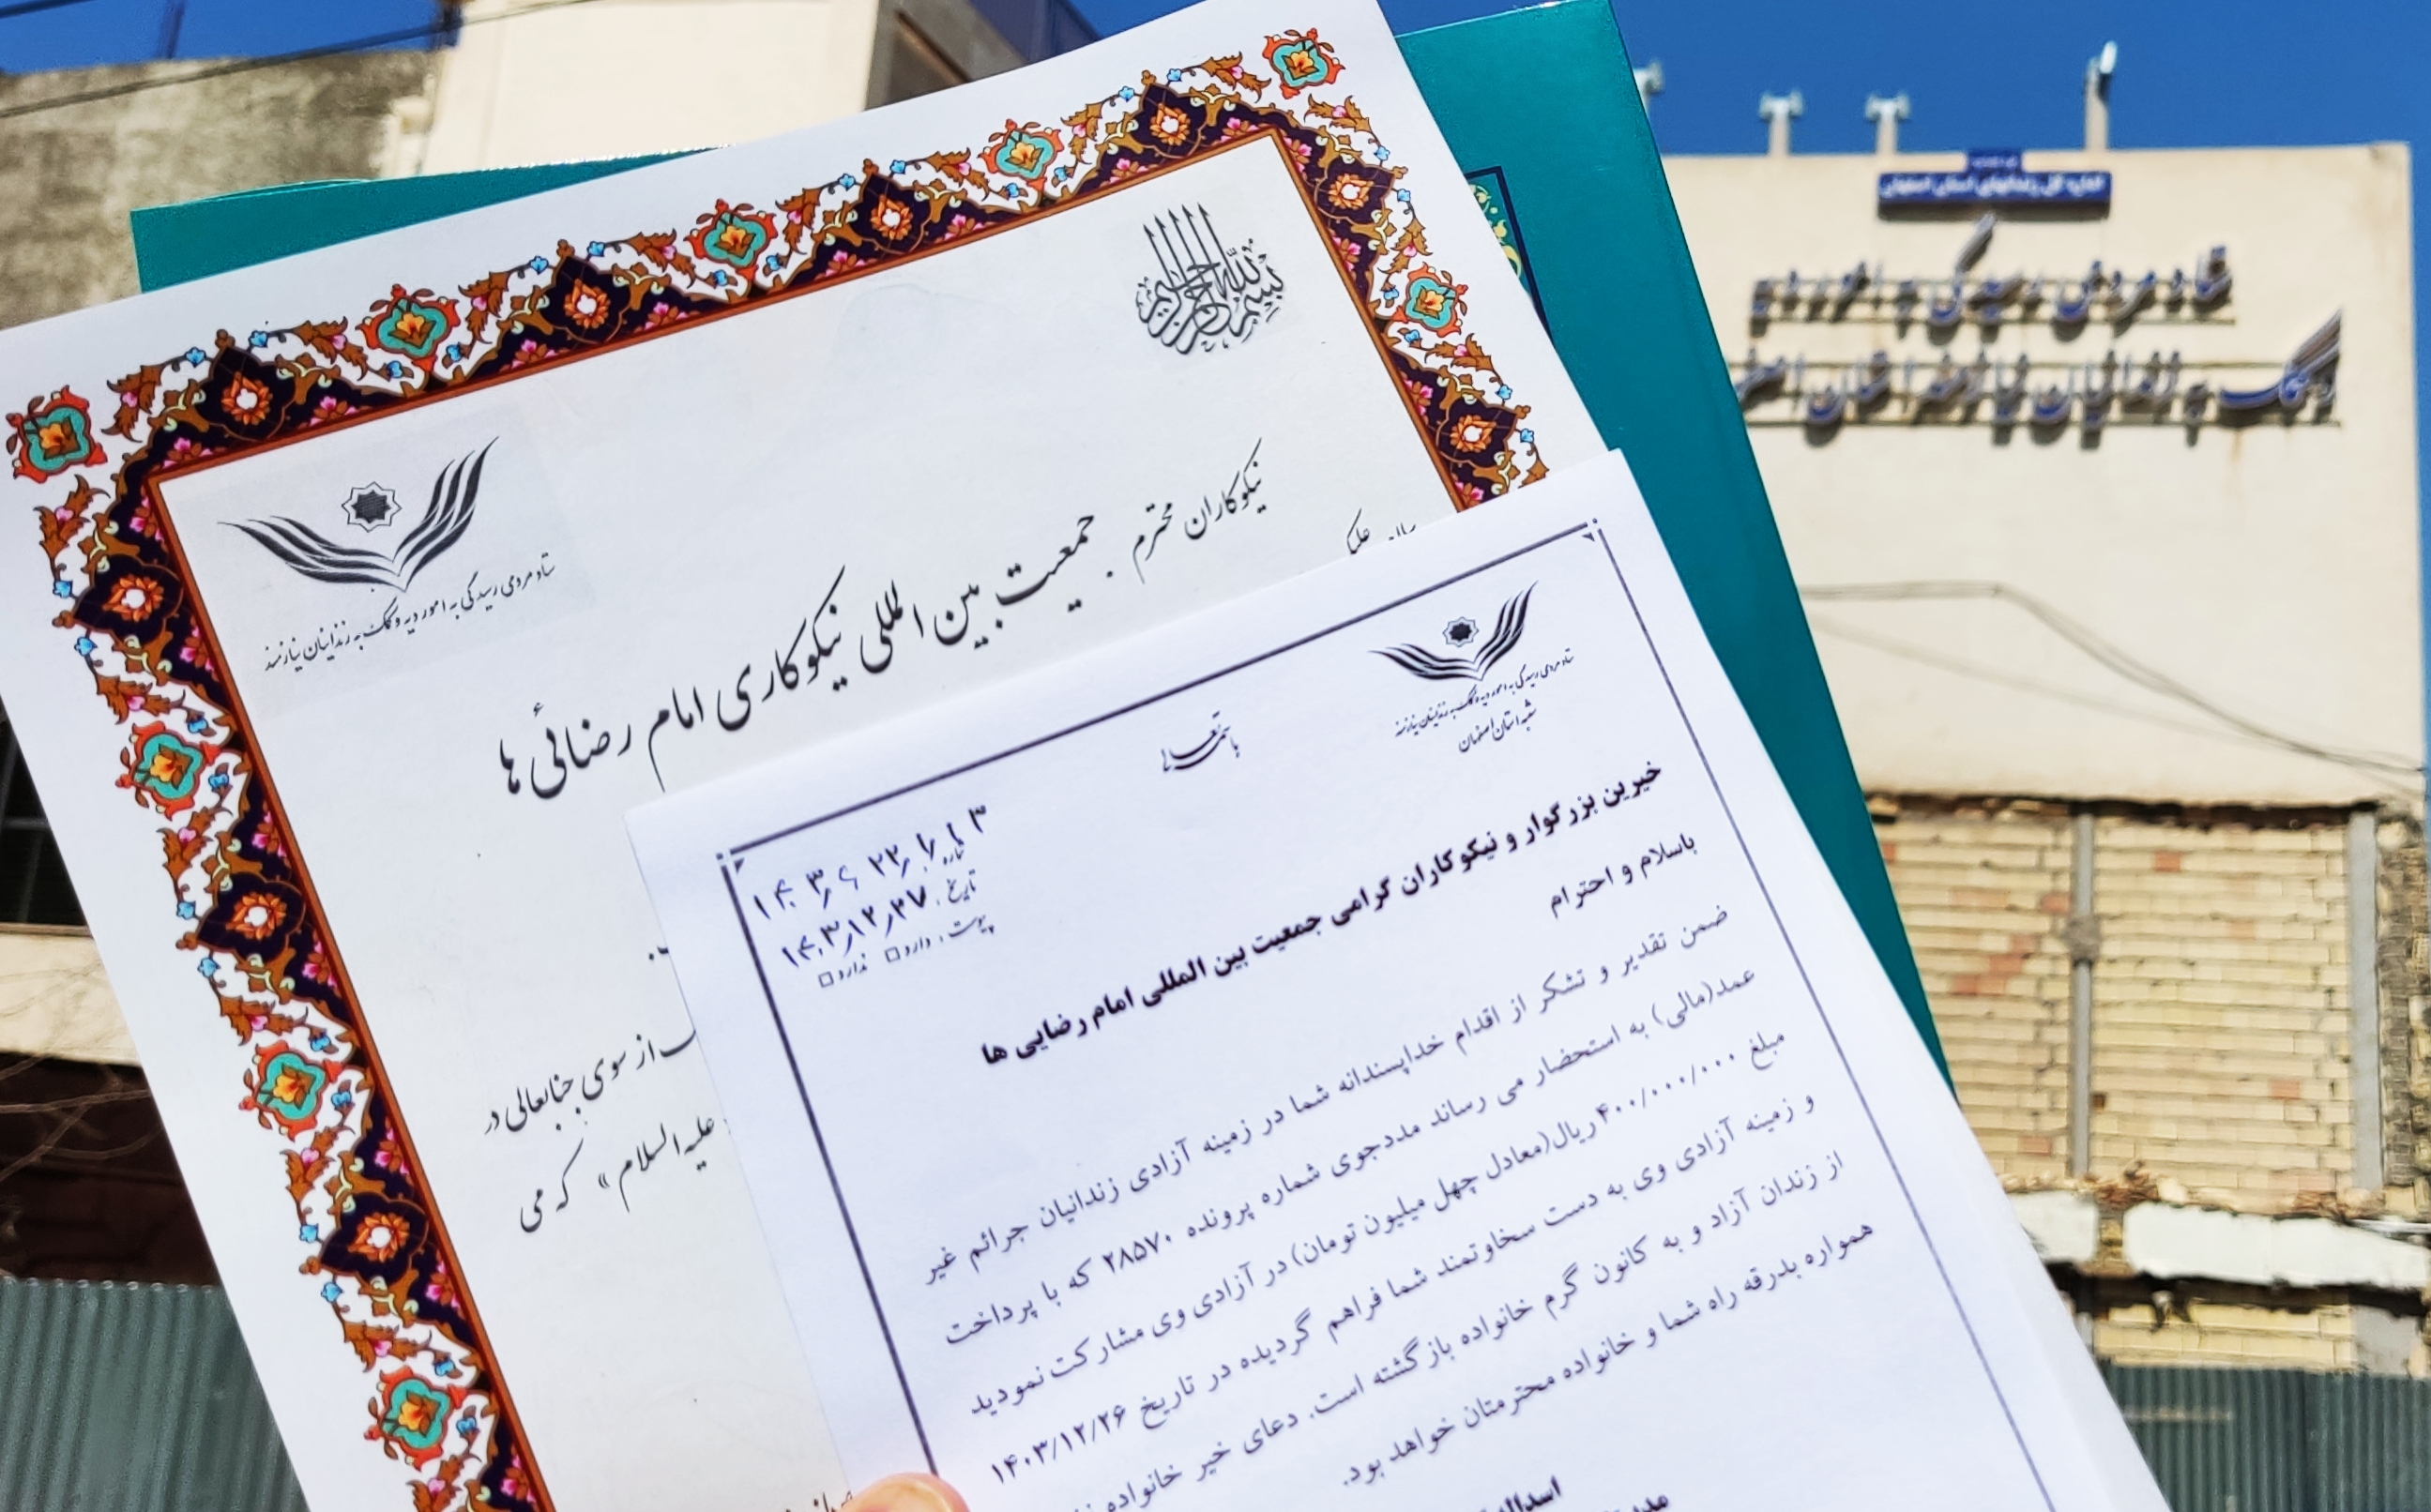 اداره کل زندانهای استان اصفهان
ستاد مردمی رسیدگی به امور دیه و
کمک به زندانیان نیازمند استان
بسم الله الرحمن الرحیم
ستاد مردمی رسیدگی به امور دیه و کمک به زندانیان نیازمند
نیکوکاران محترم .
جمعیت بین المللی نیکوکاری امام رضائی ها
از سوی جنابعالی در
علیه السلام » که می
ستاد مردمی رسیدگی به امور دیه و کمک به زندانیان نیازمند
شعبه استان اصفهان
باسمه تعالی
شماره
تاریخ . ۱۴۰۳/۱۲/۲۷
پیوست . دارد □ ندارد □
خیرین بزرگوار و نیکوکاران گرامی جمعیت بین المللی امام رضایی ها
باسلام و احترام
ضمن تقدیر و تشکر از اقدام خداپسندانه شما در زمینه آزادی زندانیان جرائم غیر
عمد(مالی) به استحضار می رساند مددجوی شماره پرونده ۲۸۵۷۰ که با پرداخت
مبلغ ۴۰۰/۰۰۰/۰۰۰ ریال(معادل چهل میلیون تومان) در آزادی وی مشارکت نمودید
و زمینه آزادی وی به دست سخاوتمند شما فراهم گردیده در تاریخ ۱۴۰۳/۱۲/۲۶
از زندان آزاد و به کانون گرم خانواده بازگشته است. دعای خیر خانواده
همواره بدرقه راه شما و خانواده محترمتان خواهد بود.